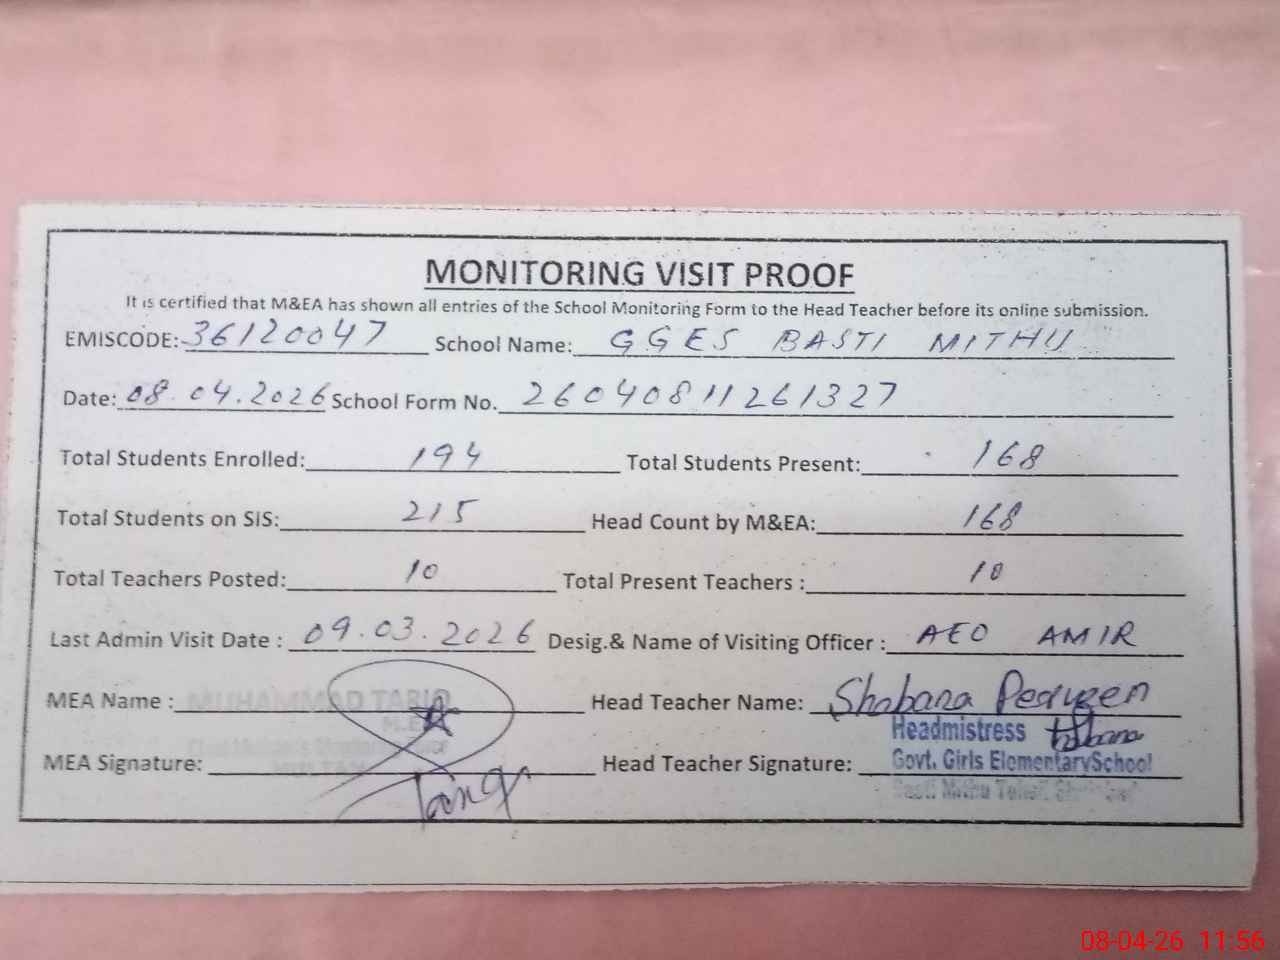 MONITORING VISIT PROOF
It is certified that M&EA has shown all entries of the School Monitoring Form to the Head Teacher before its online submission.
EMISCODE: 36120047 School Name: GGES BASTI MITHU
Date: 08.04.2026 School Form No. 26040811261327
Total Students Enrolled: 194 Total Students Present: 168
Total Students on SIS: 215 Head Count by M&EA: 168
Total Teachers Posted: 10 Total Present Teachers : 10
Last Admin Visit Date : 09.03.2026 Desig.& Name of Visiting Officer : AEO AMIR
MEA Name : MUHAMMAD TARIQ Head Teacher Name: Shabana Perveen
Headmistress Shabana
MEA Signature: Tariq Head Teacher Signature: Govt. Girls Elementary School
MULTAN
Basti Mithu
08-04-26 11:56